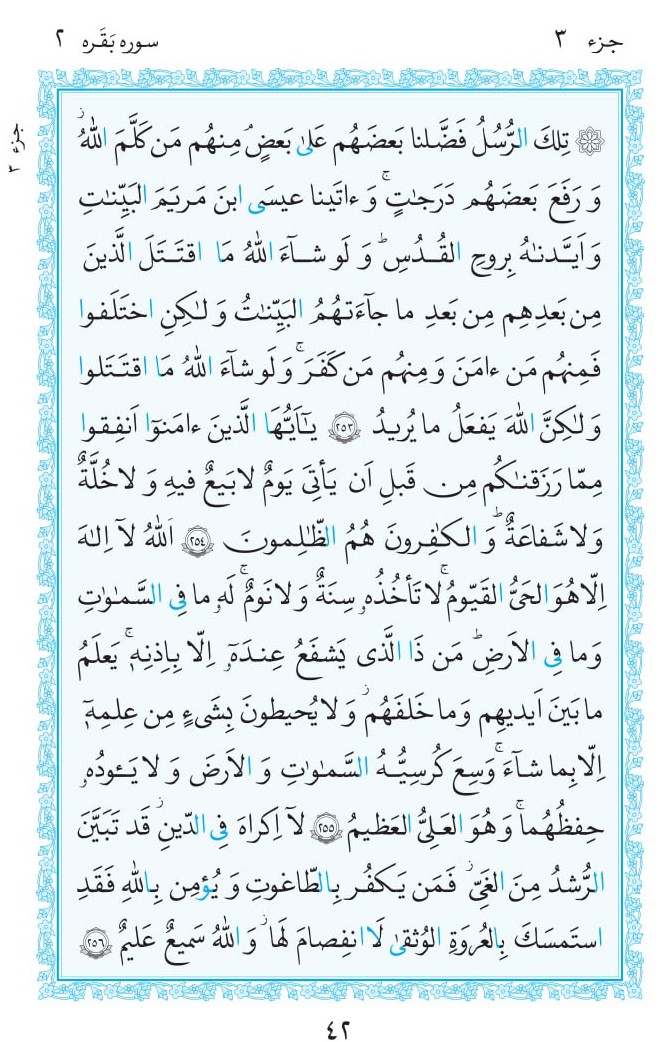 جزء ٣
سوره بَقَره ٢
جزء ٣
تِلكَ الرُّسُلُ فَضَّلنا بَعضَهُم عَلىٰ بَعضٍ ۘ مِنهُم مَن كَلَّمَ اللهُ ۖ
وَ رَفَعَ بَعضَهُم دَرَجٰتٍ ۚ وَ ءاتَينا عيسَى ابنَ مَريَمَ البَيِّنٰتِ
وَ اَيَّدنٰهُ بِروحِ القُدُسِ ۗ وَ لَو شآءَ اللهُ مَا اقتَتَلَ الَّذينَ
مِن بَعدِهِم مِن بَعدِ ما جآءَتهُمُ البَيِّنٰتُ وَ لٰكِنِ اختَلَفوا
فَمِنهُم مَن ءامَنَ وَ مِنهُم مَن كَفَرَ ۚ وَ لَو شآءَ اللهُ مَا اقتَتَلوا
وَ لٰكِنَّ اللهَ يَفعَلُ ما يُريدُ ﴿٢٥٣﴾ يٰٓاَيُّهَا الَّذينَ ءامَنوٓا اَنفِقوا
مِمّا رَزَقنٰكُم مِن قَبلِ اَن يَأتِىَ يَومٌ لا بَيعٌ فيهِ وَ لا خُلَّةٌ
وَ لا شَفاعَةٌ ۗ وَ الكٰفِرونَ هُمُ الظّٰلِمونَ ﴿٢٥٤﴾ اَللهُ لآ اِلٰهَ
اِلّا هُوَ الحَىُّ القَيّومُ ۚ لا تَأخُذُه سِنَةٌ وَ لا نَومٌ ۚ لَه ما فِى السَّمٰوٰتِ
وَ ما فِى الاَرضِ ۗ مَن ذَا الَّذى يَشفَعُ عِندَهٓ اِلّا بِاِذنِه ۚ يَعلَمُ
ما بَينَ اَيديهِم وَ ما خَلفَهُم ۖ وَ لا يُحيطونَ بِشَىءٍ مِن عِلمِهٓ
اِلّا بِما شآءَ ۚ وَسِعَ كُرسِيُّهُ السَّمٰوٰتِ وَ الاَرضَ وَ لا يَـٔودُه
حِفظُهُما ۚ وَ هُوَ العَلِىُّ العَظيمُ ﴿٢٥٥﴾ لآ اِكراهَ فِى الدّينِ ۖ قَد تَبَيَّنَ
الرُّشدُ مِنَ الغَىِّ ۚ فَمَن يَكفُر بِالطّاغوتِ وَ يُؤمِن بِاللهِ فَقَدِ
استَمسَكَ بِالعُروَةِ الوُثقىٰ لَا انفِصامَ لَها ۗ وَ اللهُ سَميعٌ عَليمٌ ﴿٢٥٦﴾
٤٢